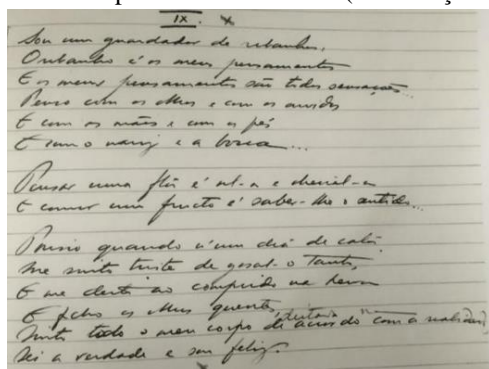 IX.
Sou um guardador de rebanhos,
O rebanho é os meus pensamentos
E os meus pensamentos são todos sensações...
Penso com os olhos e com os ouvidos
E com as mãos e com os pés
E com o nariz e a bocca...
Pensar uma flôr é vel-a e cheiral-a
E comer um fructo é saber-lhe o sentido...
Por isso quando n'um dia de calôr
Me sinto triste de gosal-o tanto,
E me deito ao comprido na herva
E fecho os olhos quentes,
deitado na
Sinto todo o meu corpo de accordo com a realidade,
Sei a verdade e sou feliz.